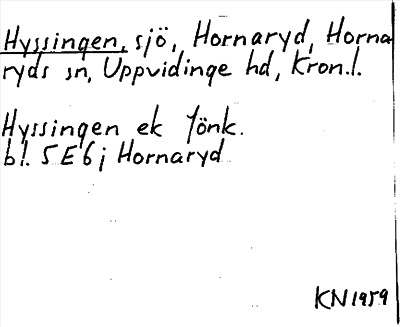 Hyssingen, sjö, Hornaryd, Horna
ryds sn, Uppvidinge hd, Kron.l.
Hyssingen ek Jönk.
bl. 5E6j Hornaryd
KN1959